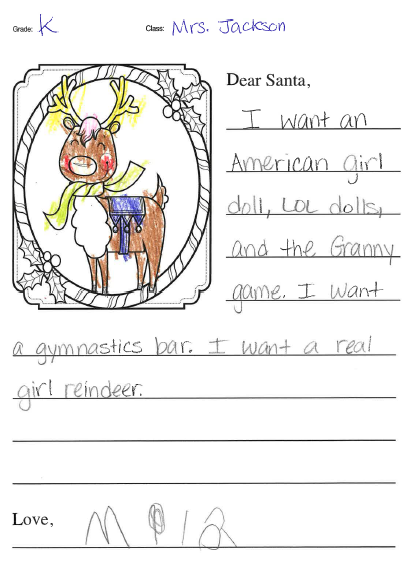 Grade: K Class: Mrs. Jackson
Dear Santa,
I want an
American girl
doll, LOL dolls,
and the Granny
game. I want
a gymnastics bar. I want a real
girl reindeer.
Love,